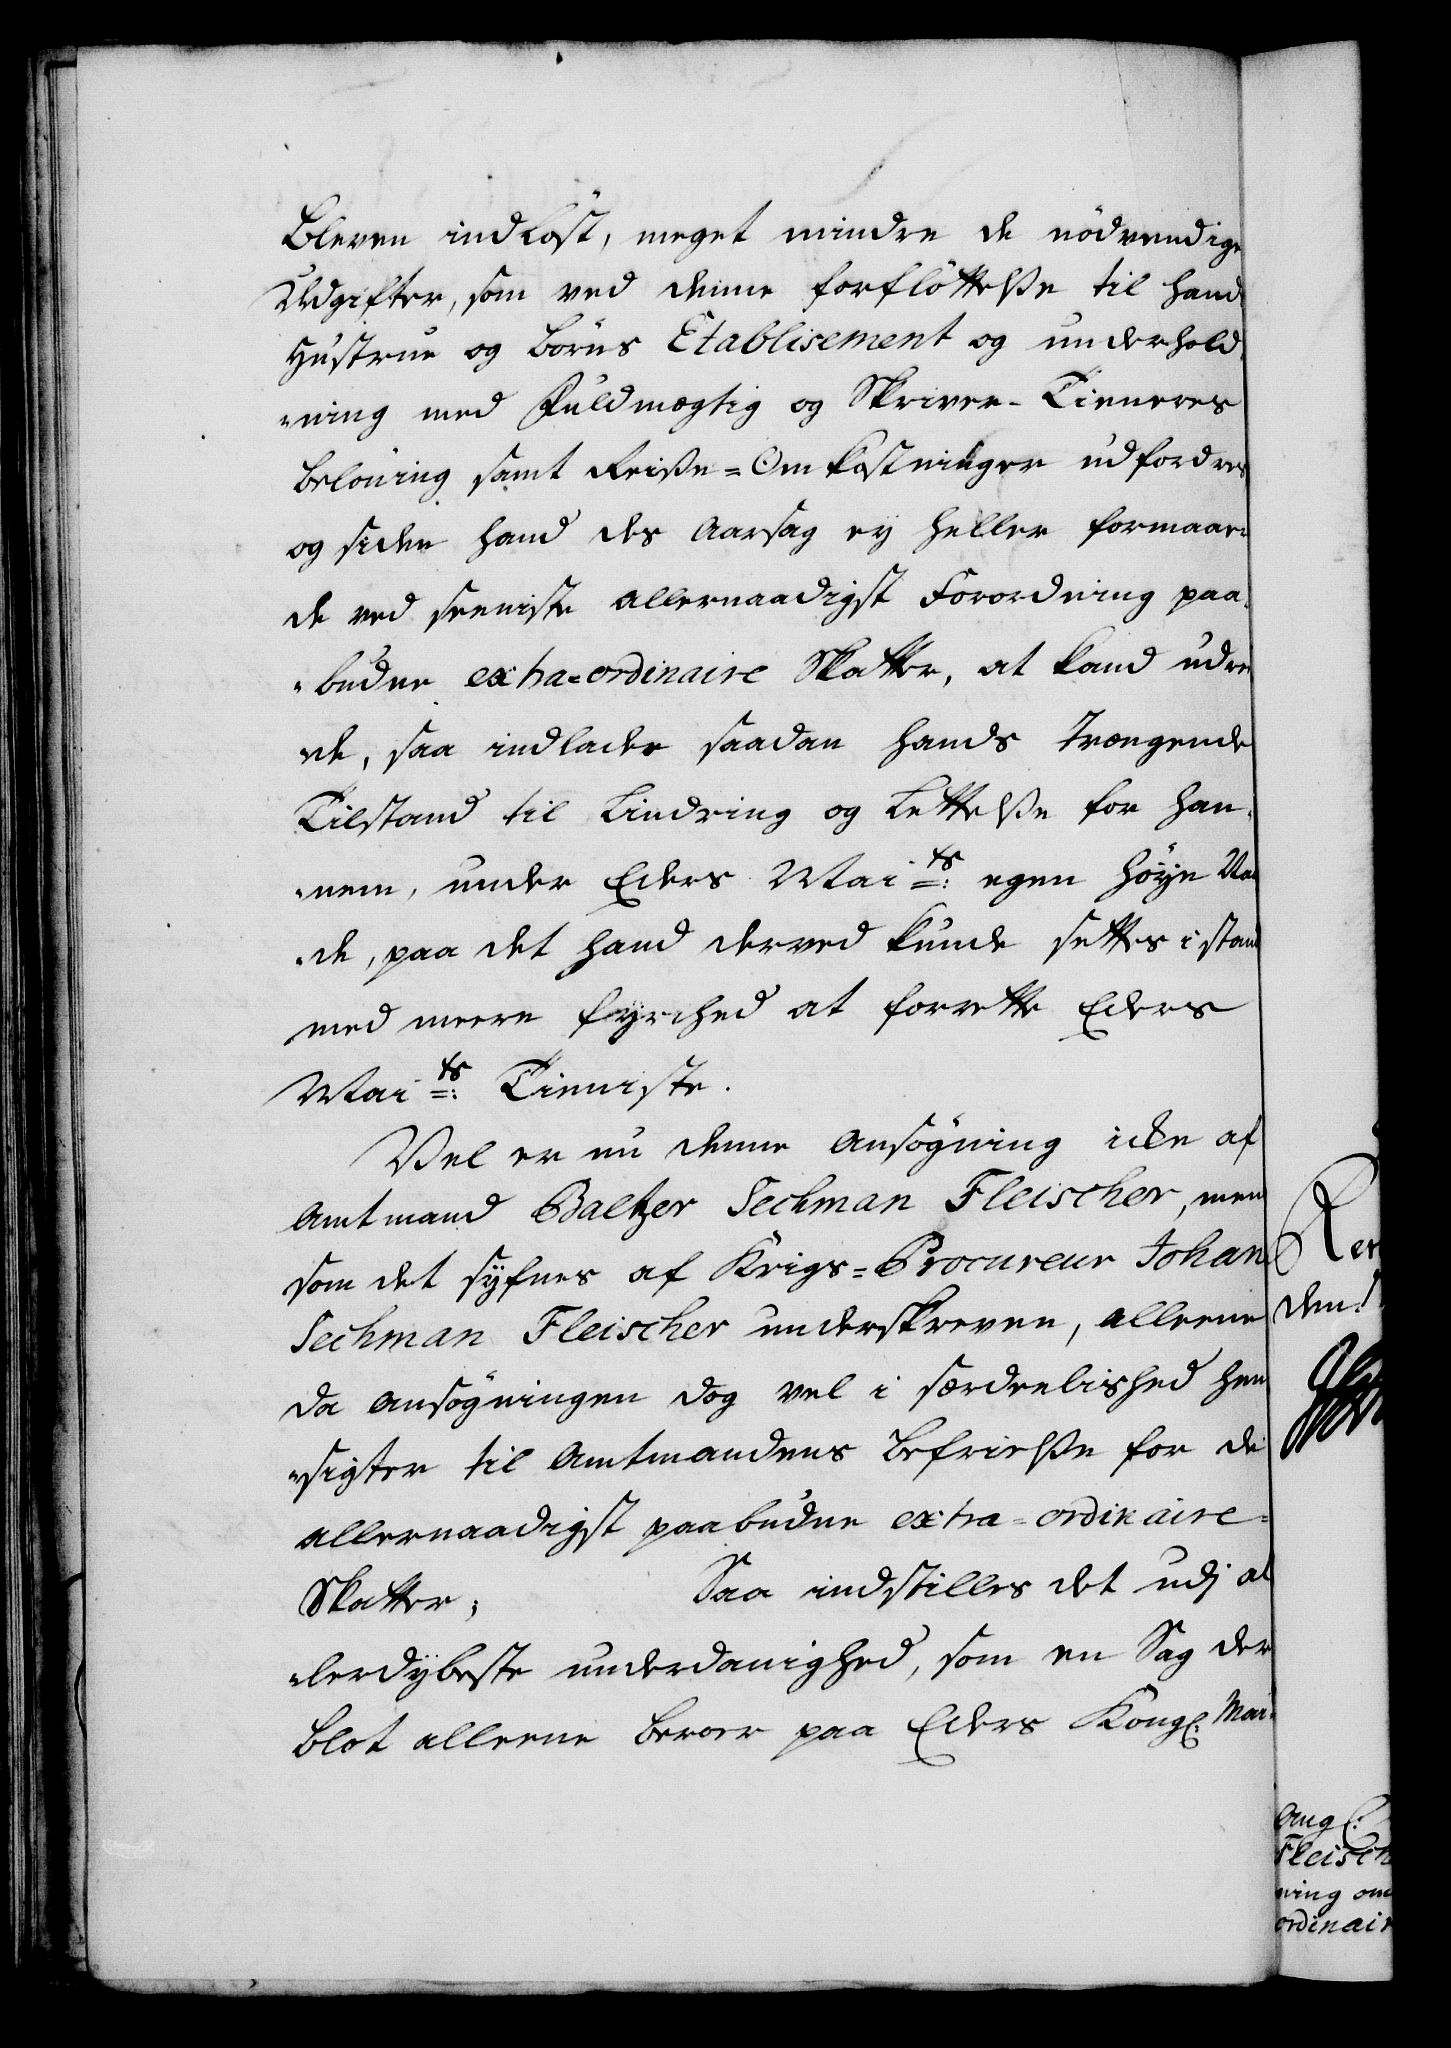 bleven indLøst, meget mindre de nødvendige
Udgifter, som ved denne forfløttelße til hand
Hustrue og børns Etablisement og underhold
-ning med Fuldmægtig og Skriver-Tieneres
beløning samt Reiße=Omkostninger udfordres
og siden hand des Aarsag ey heller formaar
de ved seeniste allernaadigst Forordning paa
-budne extra=ordinaire Skatter, at kand udre
-de, saa indlader saadan hands Trængende
Tilstand til Lindring og Lettelße for han
-nem, under Eders Mai ts: egen høye Naa
-de, paa det hand derved kunde settes i stand
med meere fyrrhed at forrette Eders
Mai ts: Tieniste.
Vel er nu denne Ansøgning icke af
Amtmand Baltzer Sechman Fleischer, men
som det syfnes af Krigs=Procureur Johan
Sechman Fleischer underskreven, alleene
da Ansøgningen dog vel i særdeelished hen
-sigter til Amtmandens befrielße for de
allernaadigst paabudne extra=ordinaire=
Skatter; Saa indstilles det udj al
-lerdybeste underdanighed, som en Sag der
blot alleene beroer paa Eders Kongl: Mai-
Ren
den
Ang:
Fleisch
ning om
ordinair